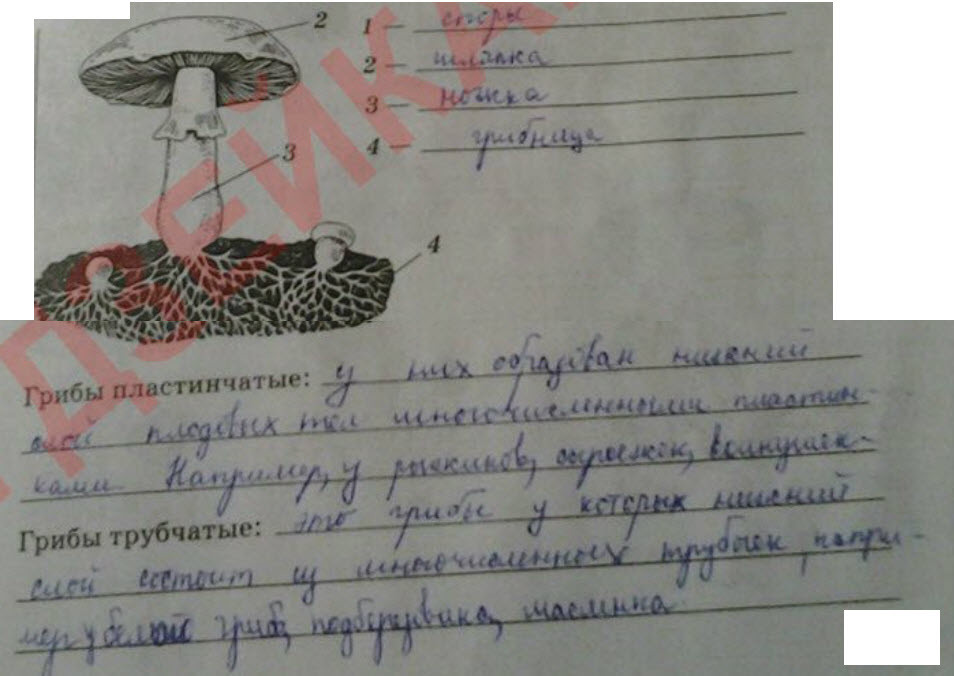 2
1 — споры
2 — шляпка
3 — ножка
4 — грибница
3
4
Грибы пластинчатые: у них образован нижний
слой плодовых тел многочисленными пластин-
ками. Например, у рыжиков, сыроежек, волнушек.
Грибы трубчатые: это грибы у которых нижний
слой состоит из многочисленных трубочек, напри-
мер у белый гриб, подберезовика, масленка.